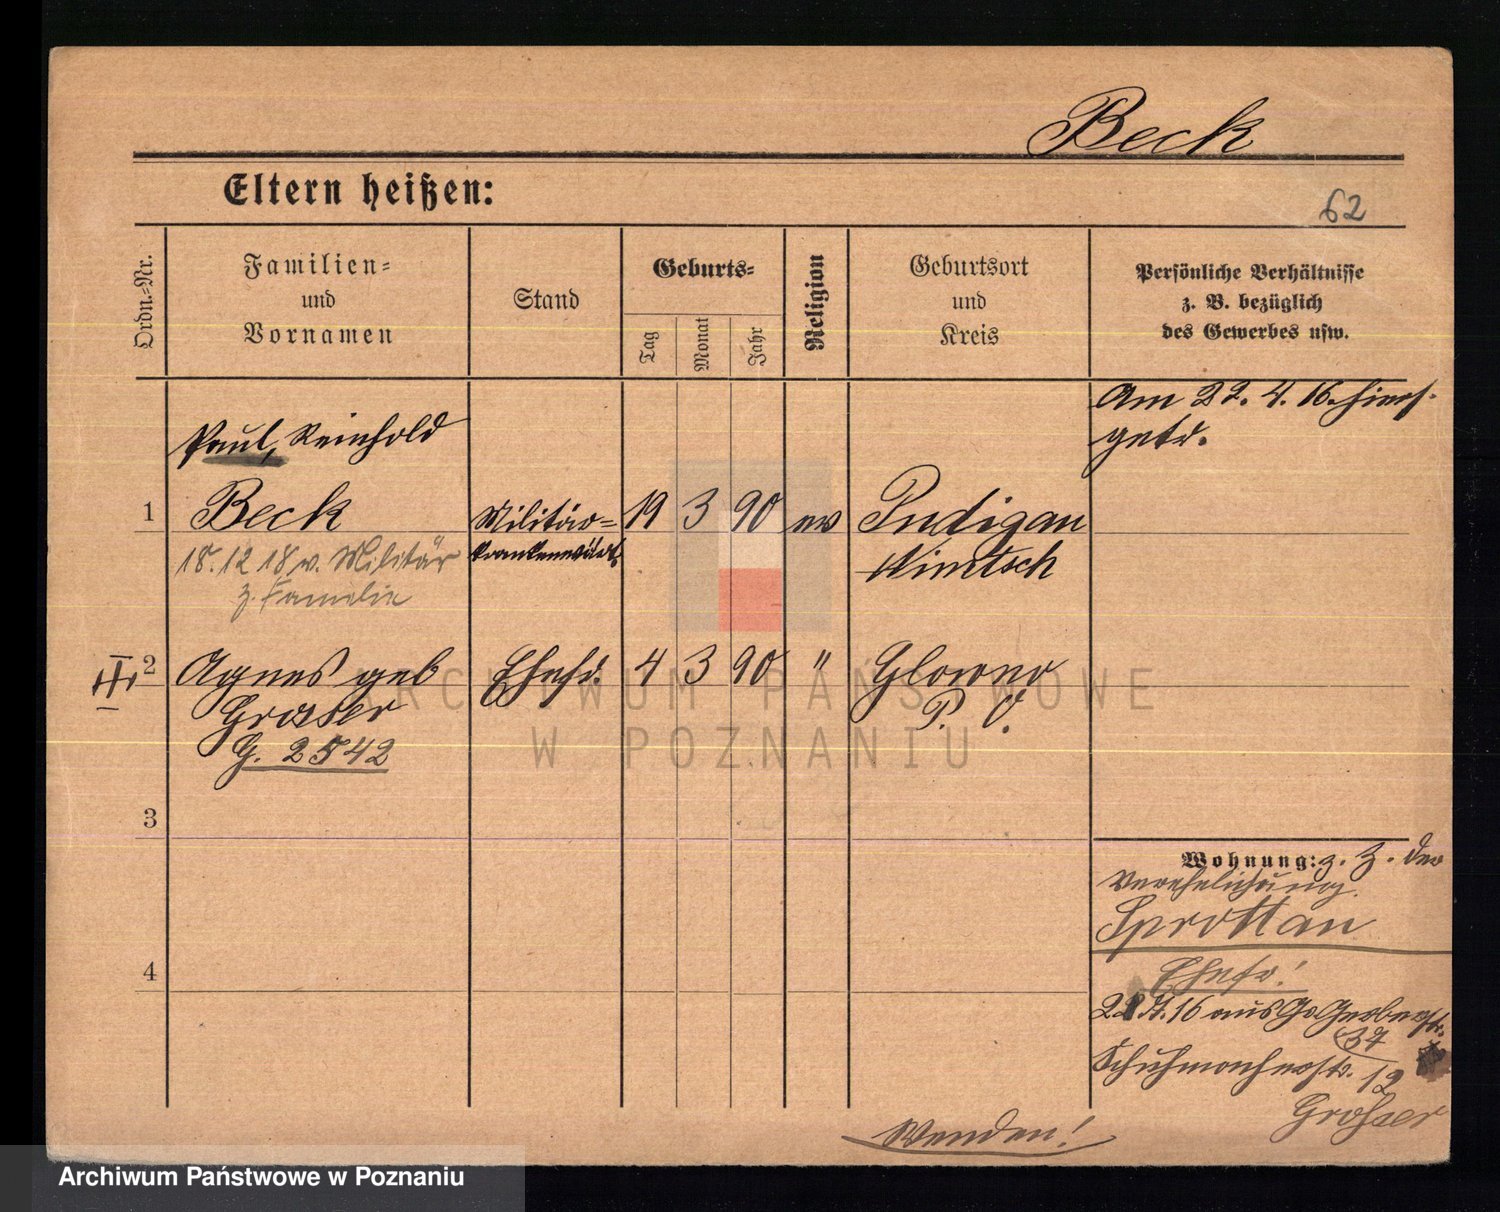 Beck
Eltern heißen:
62
Ordn.-Nr.
Familien-
und
Vornamen
Stand
Geburts-
Tag
Monat
Jahr
Religion
Geburtsort
und
Kreis
Persönliche Verhältnisse
z. B. bezüglich
des Gewerbes usw.
Am 22. 4. 16. hiers.
getr.
Paul, Reinhold
1 Beck Militär= 19 3 90 ev Pudigau
krankenwärt. Nimtsch
18. 12 18 v. Militär
z. Familie
III
2 Agnes geb Ehefr. 4 3 90 " Glowno
Graser P. O.
G. 2542
3
4
Wohnung: z. Z. der
Verehelichung
Sprottau
Ehefr!
22. 4. 16 aus Gr Gerberstr.
37
Schuhmacherstr. 12
Grosser
Wenden!
ARCHIWUM PAŃSTWOWE
W POZNANIU
Archiwum Państwowe w Poznaniu